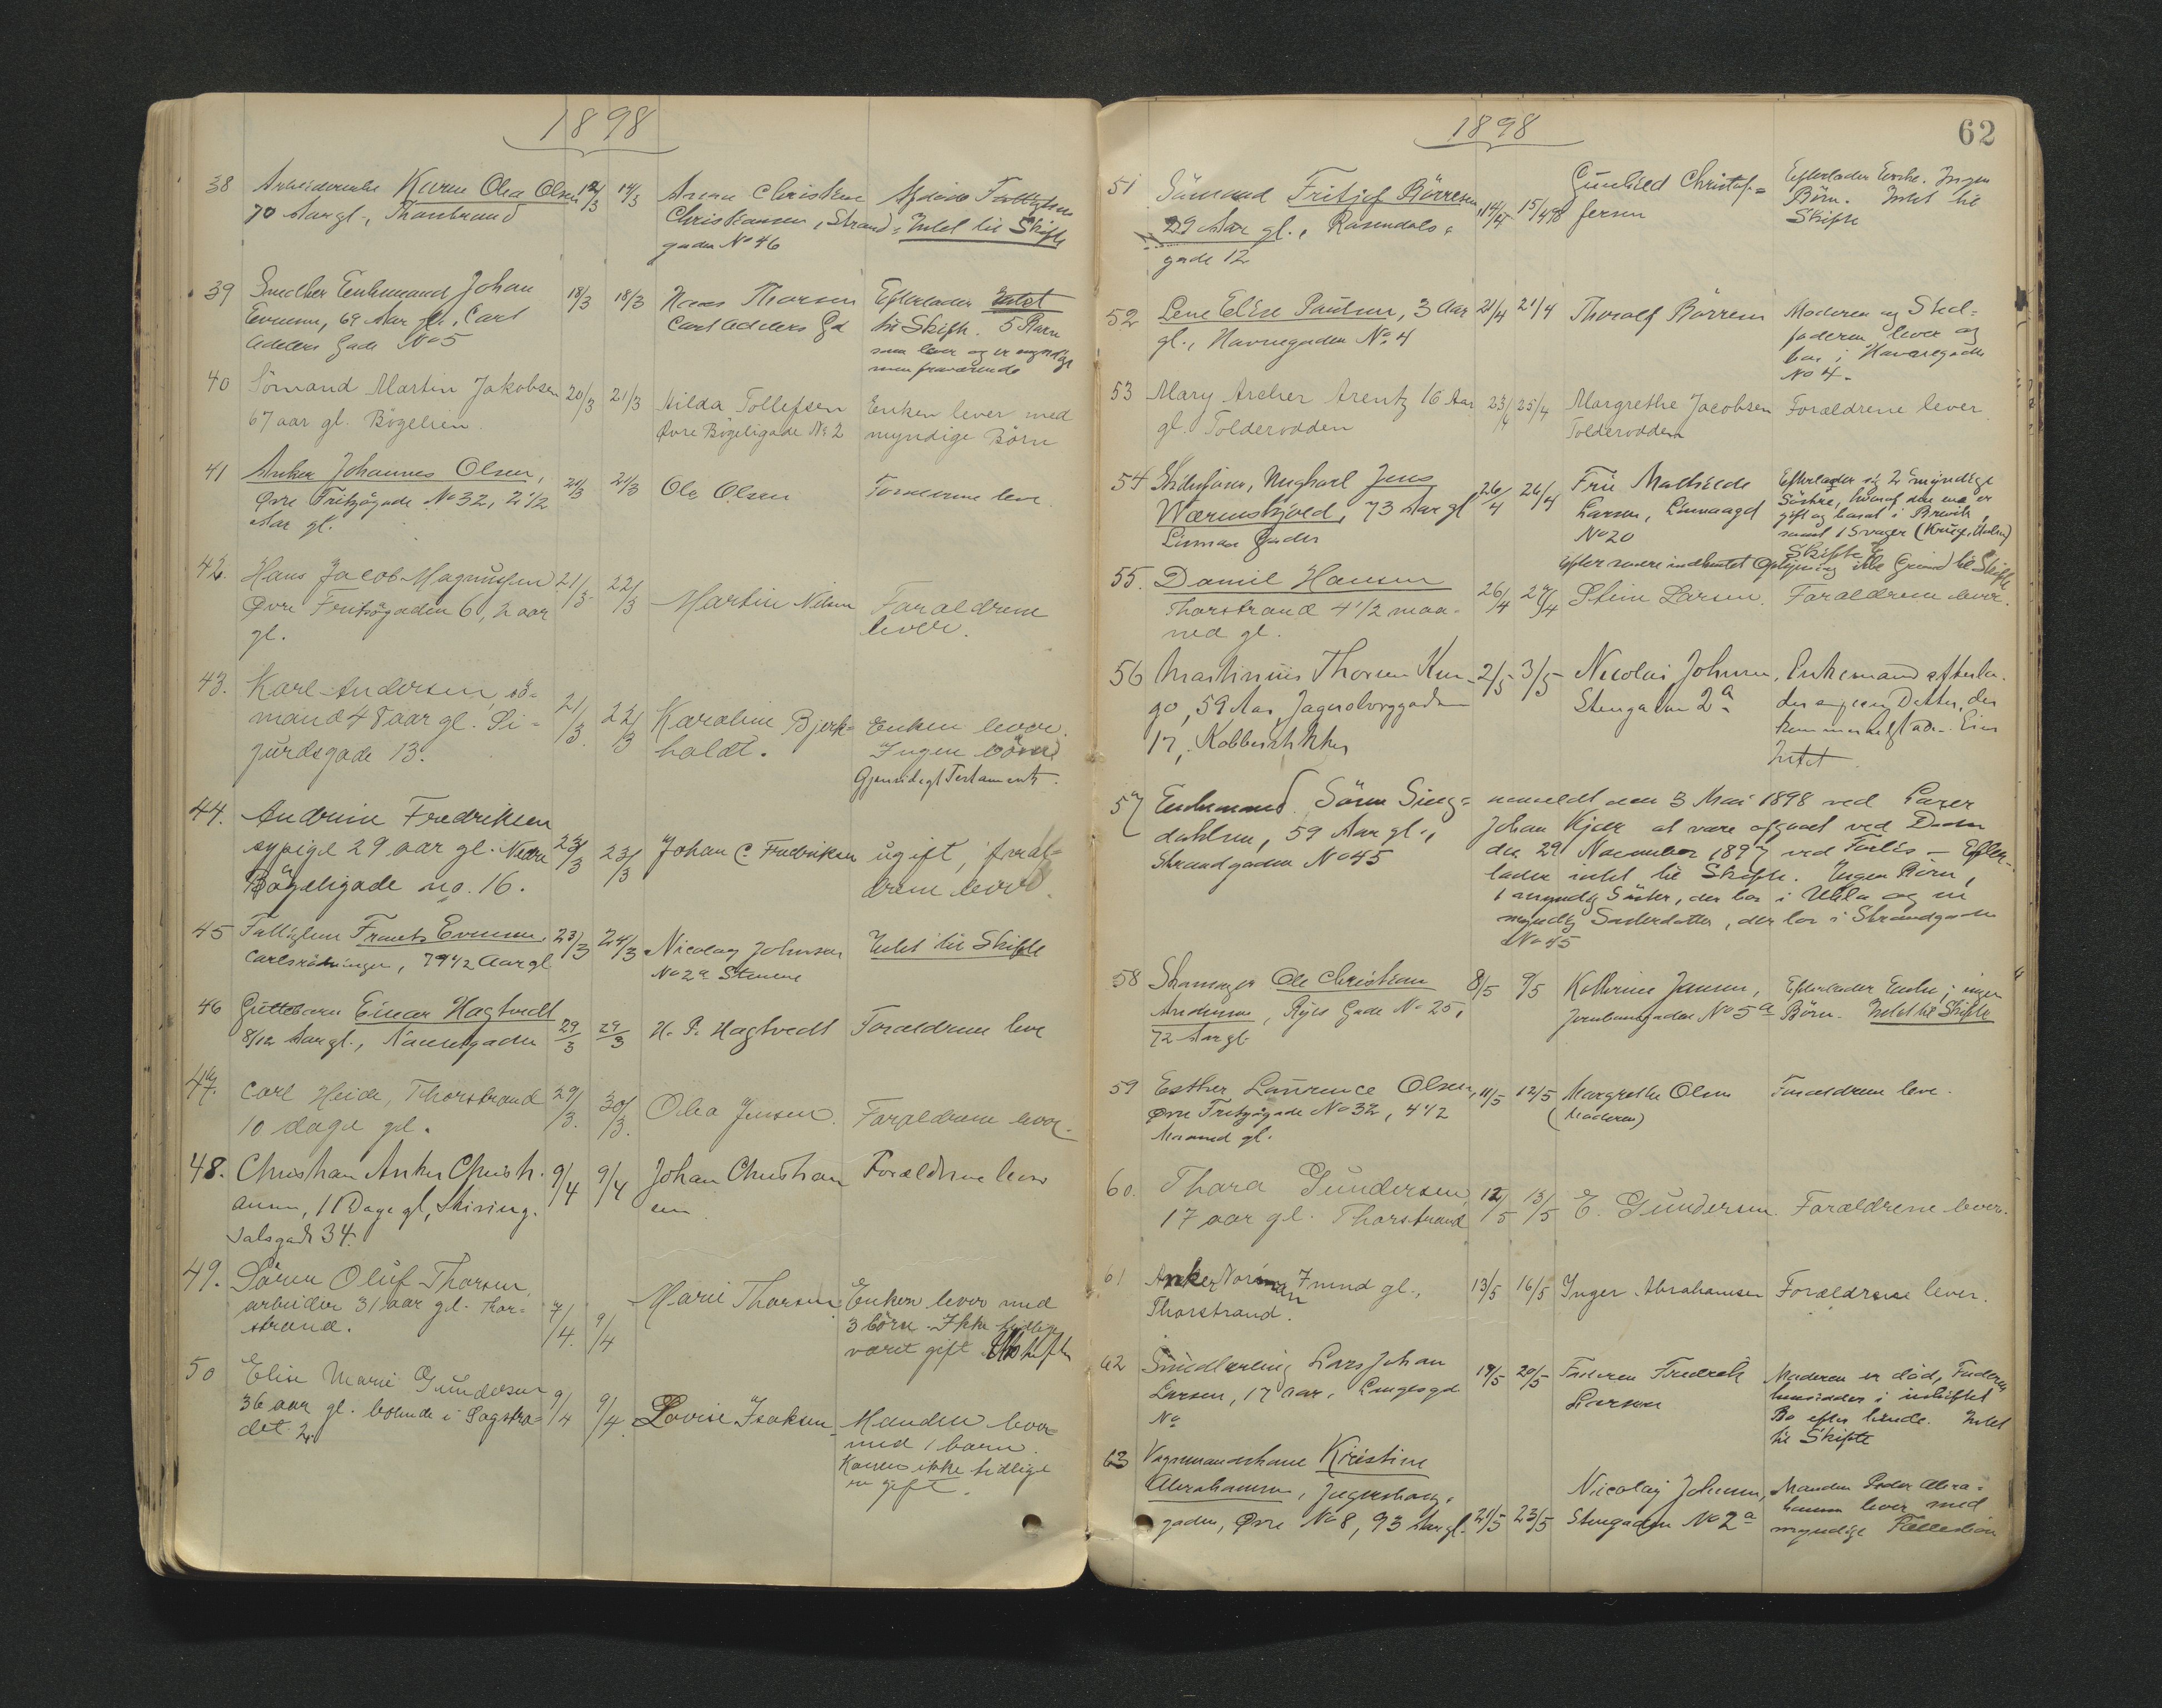 1898
38 Arbeiderenke Karen Olea Olsen 12/3 14/3 Anna Christine Afdøde Fattiglem
70 Aar gl., Thorstrand Christiansen, Strand= Intet til Skifte
gaden No 46
39 Smed Enkemand Johan 18/3 18/3 Hans Thorsen Efterlader Intet
Evensen, 69 Aar gl., Carl Carl Adelers Gd til Skifte. 5 Børn
Adelers Gade No 5 som lever og er myndige
men fraværende
40 Sömand Martin Jakobsen 20/3 21/3 Hilda Tollefsen Enken lever med
67 aar gl. Bögelien. Øvre Bögeligade No 2 myndige Börn
41 Anker Johannes Olsen, 21/3 21/3 Ole Olsen Forældrene leve
Øvre Fritzögade No 32, 2 1/2
Aar gl.
42. Hans Jacob Magnussen 21/3 22/3 Martin Nilsen Forældrene
Øvre Fritzögaden 6, 2 aar lever.
gl.
43. Karl Andersen, sö= 21/3. 22/3 Karoline Bjerk= Enken lever.
mand 48 aar gl. Si= holdt. Ingen börn
gurdsgade 13. Gjensidigt Testament.
44. Andrine Fredriksen
sypige 29 aar gl. Nedre 23/3 23/3 Johan C. Fredriksen ugift, foræl=
Bögeligade no. 16. drene lever.
45 Fattiglem Frants Evensen 23/3 24/3 Nicolay Johnsen Intet til Skifte
79 1/2 Aar gl No 2a Stenene
46 Guttebarn Einar Hagtvedt 29/3 29/3 H. P. Hagtvedt Forældrene leve
8/12 Aar gl., Nansetgaden
47. Carl Heide, Thorstrand 29/3. 30/3. Olea Jensen. Forældrene lever.
10 dage gl.
48. Christian Anker Christi. 9/4 9/4 Johan Christian Forældrene lever
ansen, 11 Dage gl, Skiring. sen
salsgade 34.
49. Sören Oluf Thorsen, Marie Thorsen. Enken lever med
arbeider 31 aar gl. Thor= 7/4. 9/4 3 börn. Ikke tidligere
strand. været gift
50 Elise Marie Gundersen 9/4 9/4. Lovise Isaksen Manden lever
36 aar gl. boende i Sagstræ= med 1 barn.
det 2. Konen ikke tidlige
re gift.
1898
62
51 Sömand Fritjof Börresen 14/4 15/4 98 Gunhild Christof= Efterlader Enke. Ingen
29 Aar gl., Rosendals= fersen Börn. Intet til
gade 12 Skifte
52 Lene Elise Paulsen, 3 Aar 21/4 21/4 Thorolf Börresen Moderen og Sted=
gl., Havnegaden No. 4 faderen lever og
bor i Havnegaden
No 4.
53 Mary Archer Arentz 16 Aar 23/4 25/4 Margrethe Jacobsen Forældrene lever.
gl. Tolderodden Tolderodden
54 Skibsfører, Ungkarl Jens 26/4 26/4 Frü Mathilde Efterlader sig 2 myndige
Wærenskjold, 73 Aar gl Larsen, Linnaagd Söstre, hvoraf den ene er
Linnaa Gaden No 20 gift og bosat i Brevik,
samt 1 Svoger
Skifte
Efter senere indhentet Oplysning ikke Grund til Skifte
55. Daniel Hansen 26/4 27/4 Stine Larsen. Forældrene lever.
Thorstrand 4 1/2 maa=
ned gl.
56 Martinius Thorsen 2/5 3/5 Nicolai Johnsen, Enkemand efterla.
59 Aar, Jagersborggaden Stengaden 2a der sig en Datter, der
17, Eier
Intet
57 Enkemand Sören Sing= anmeldt den 3 Mai 1898 ved
dahlsen, 59 Aar gl., Johan Kjær at være afgaaet ved Döden
Strandgaden No 45 den 29 November 1897 ved Forlis – Efter=
lader intet til Skifte. Ingen Börn,
1 myndig Söster, der bor i Ula og en
myndig Sösterdatter, der bor i Strandgaden
No 45
58 Ole Christian 8/5 9/5 Kathrine Jansen, Efterlader Enke; ingen
Andersen, Ryes Gade No 25, Jernbanegaden No 5a Börn. Intet til Skifte
72 Aar gl
59 Esther Laurence Olsen, 11/5 12/5 Margrethe Olsen Forældrene leve.
Øvre Fritzögade No 32, 4 1/2 (Moderen)
Maaned gl.
60. Thora Gundersen, 12/5 13/5 E. Gundersen. Forældrene lever.
17 aar gl. Thorstrand
61 Anker Norman 7 mnd gl., 13/5 16/5 Inger Abrahamsen Forældrene lever.
Thorstrand.
62 Smedlærling Lars Johan 19/5 20/5 Faderen Fredrik Moderen er död, Faderen
Larsen, 17 aar, Langesgd Larsen hensidder i uskiftet
No Bo efter hende. Intet
til Skifte
63 Vognmandskone Kristine
Abrahamsen, Jegersborg= Nicolay Johnsen, Manden Peder Abra=
gaden, Øvre No 8, 93 Aar gl. 21/5 23/5 Stengaden No 2a hamsen lever med
myndige